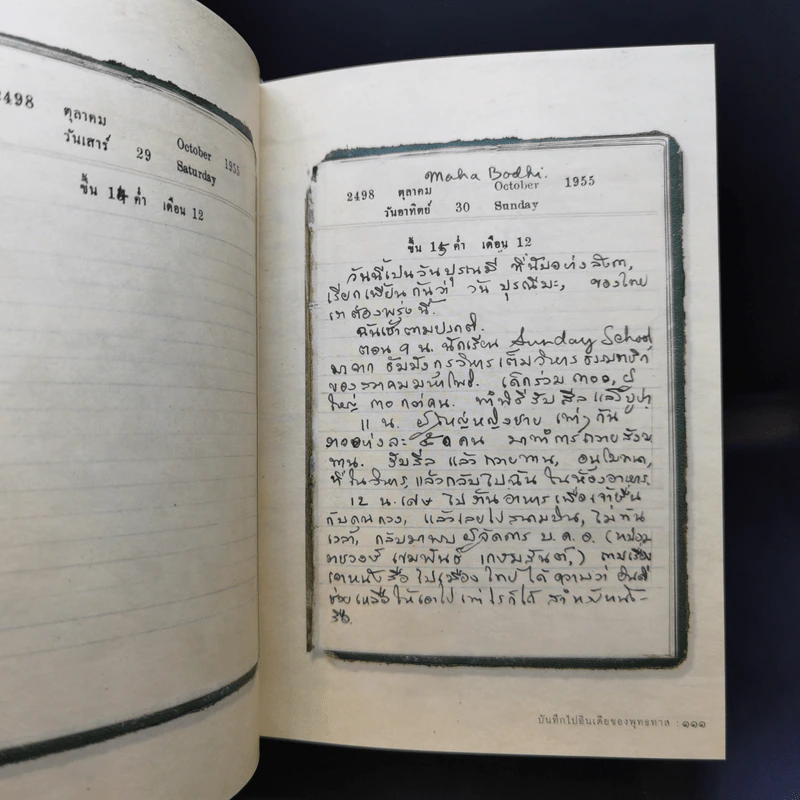 2498 ตุลาคม October 1955
วันเสาร์ 29 Saturday
ขึ้น 14 ค่ำ เดือน 12
Maha Bodhi.
2498 ตุลาคม October 1955
วันอาทิตย์ 30 Sunday
ขึ้น 15 ค่ำ เดือน 12
วันนี้เป็นวันปุรณมี ที่นับอย่างลังกา,
เรียกเพี้ยนกันว่า วัน ปุรณิมะ, ของไทย
เราต้องพรุ่งนี้.
ฉันเช้าตามปรกติ.
ตอน ๙ น. นักเรียน Sunday School
มาจาก ธัมมังกรวิหาร เต็มวิหาร
ของสมาคมมหาโพธิ. เด็กร่วม ๓๐๐, ผู้
ใหญ่ ๓๐ กว่าคน. ทำพิธีรับศีล แล้วบูชา
๑๑ น. ผู้ใหญ่หญิงชาย เท่าๆ กัน
ราวอย่างละ ๕๐ คน มาทำการถวายสังฆ
ทาน. รับศีล แล้วถวายทาน, อนุโมทนา,
ที่ในวิหาร, แล้วกลับไปฉัน ในห้องอาหาร.
12 น. เศษ ไป
กับคุณกวง, แล้วเลยไปสนามบิน, ไม่ทัน
เวลา, กลับมาพบ ผู้จัดการ บ.ด.อ. (หม่อม
ราชวงศ์ เกษมสันต์,) ถามเรื่อง
เอาหนังสือ ไปเมืองไทย ได้ความว่า ยินดี
ช่วยเหลือให้เอาไปเท่าไรก็ได้ สำหรับหนัง-
สือ.
บันทึกไปอินเดียของพุทธทาส : ๑๑๑